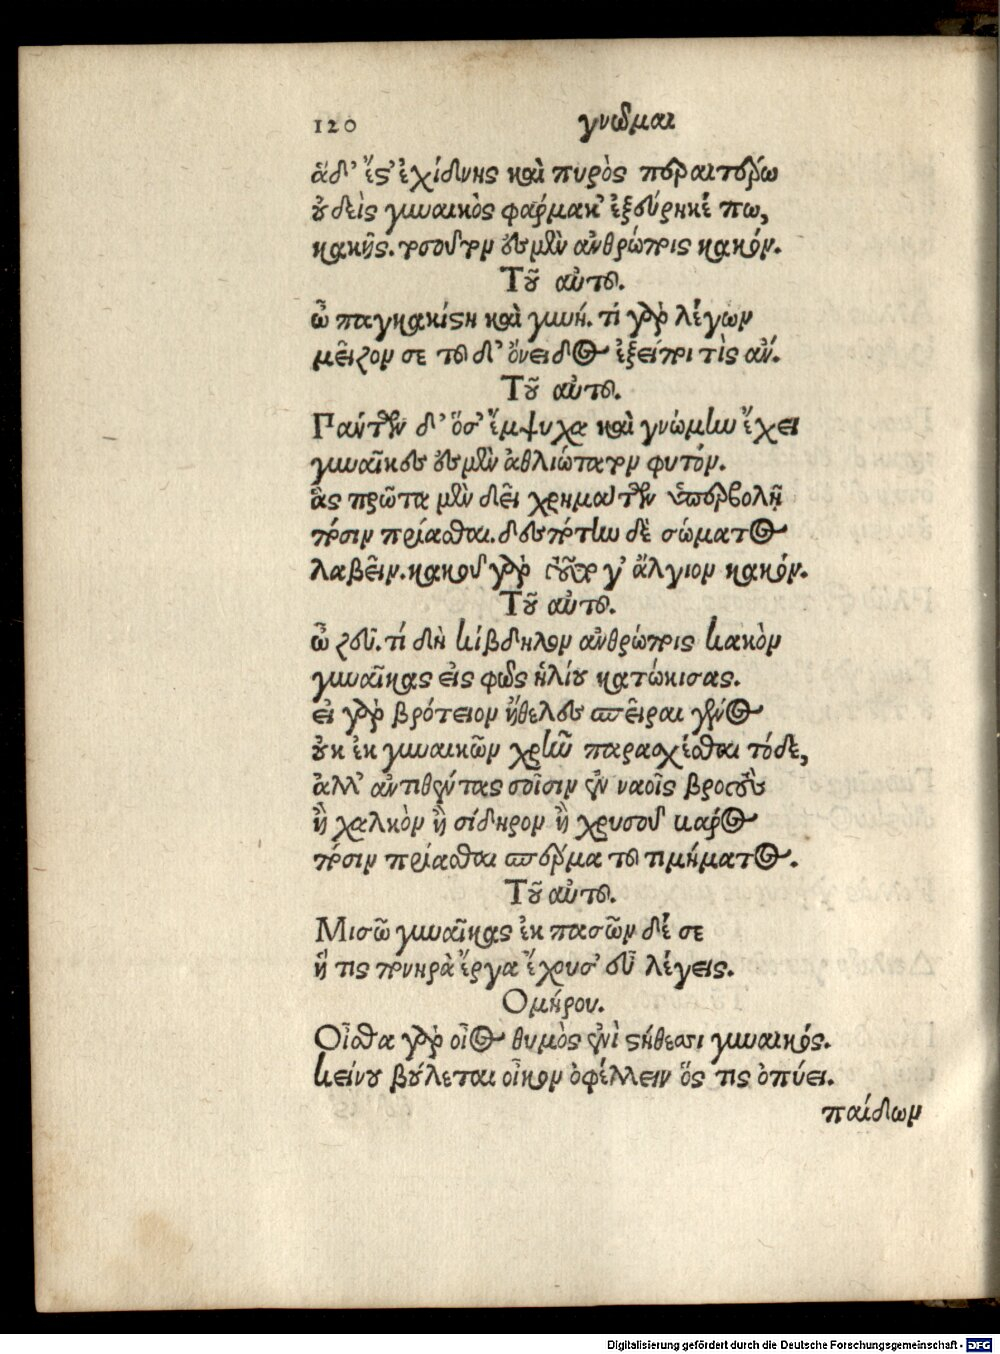 120 γνῶμαι
ἅδ' ἔς' ἐχίδνης καὶ πυρὸς περαιτέρω
οὐδεὶς γυναικὸς φάρμακ' ἐξεύρηκέ πω,
κακῆς. τοσοῦτον ἐσμὲν ἀνθρώποις κακόν.
Τοῦ αὐτοῦ.
ὦ παγκακίςη καὶ γυνή. τί γὰρ λέγων
μεῖζον σε τοῦ δ' ὄνειδος ἐξείποι τὶς ἄν.
Τοῦ αὐτοῦ.
Πάντων δ' ὅσ' ἔμψυχα καὶ γνώμην ἔχει
γυναῖκες ἐσμὲν ἀθλιώτατον φυτόν.
ἃς πρῶτα μὲν δεῖ χρημάτων ὑπερβολῇ
πόσιν πρίασθαι. δεσπότην δὲ σώματος
λαβεῖν. κακοῦ γὰρ τοῦτο γ' ἄλγιον κακόν.
Τοῦ αὐτοῦ.
ὦ ζεῦ. τί δὴ κίβδηλον ἀνθρώποις κακὸν
γυναῖκας εἰς φῶς ἡλίου κατώκισας.
εἰ γὰρ βρότειον ἤθελες σπεῖραι γένος
οὐκ ἐκ γυναικῶν χρῆν παρασχέσθαι τόδε,
ἀλλ' ἀντιθέντας σοῖσιν ἐν ναοῖς βροτοὺς
ἢ χαλκὸν ἢ σίδηρον ἢ χρυσοῦ βάρος
πόσιν πρίασθαι σπέρμα τοῦ τιμήματος.
Τοῦ αὐτοῦ.
Μισῶ γυναῖκας ἐκ πασῶν δέ σε
ἥ τις πονηρὰ ἔργα ἔχουσ' εὖ λέγεις.
Ομήρου.
Οἶσθα γὰρ οἷος θυμὸς ἐνὶ ςήθεσσι γυναικός.
κείνου βούλεται οἶκον ὀφέλλειν ὅς τις ὀπύει.
παίδων
Digitalisierung gefördert durch die Deutsche Forschungsgemeinschaft - DFG